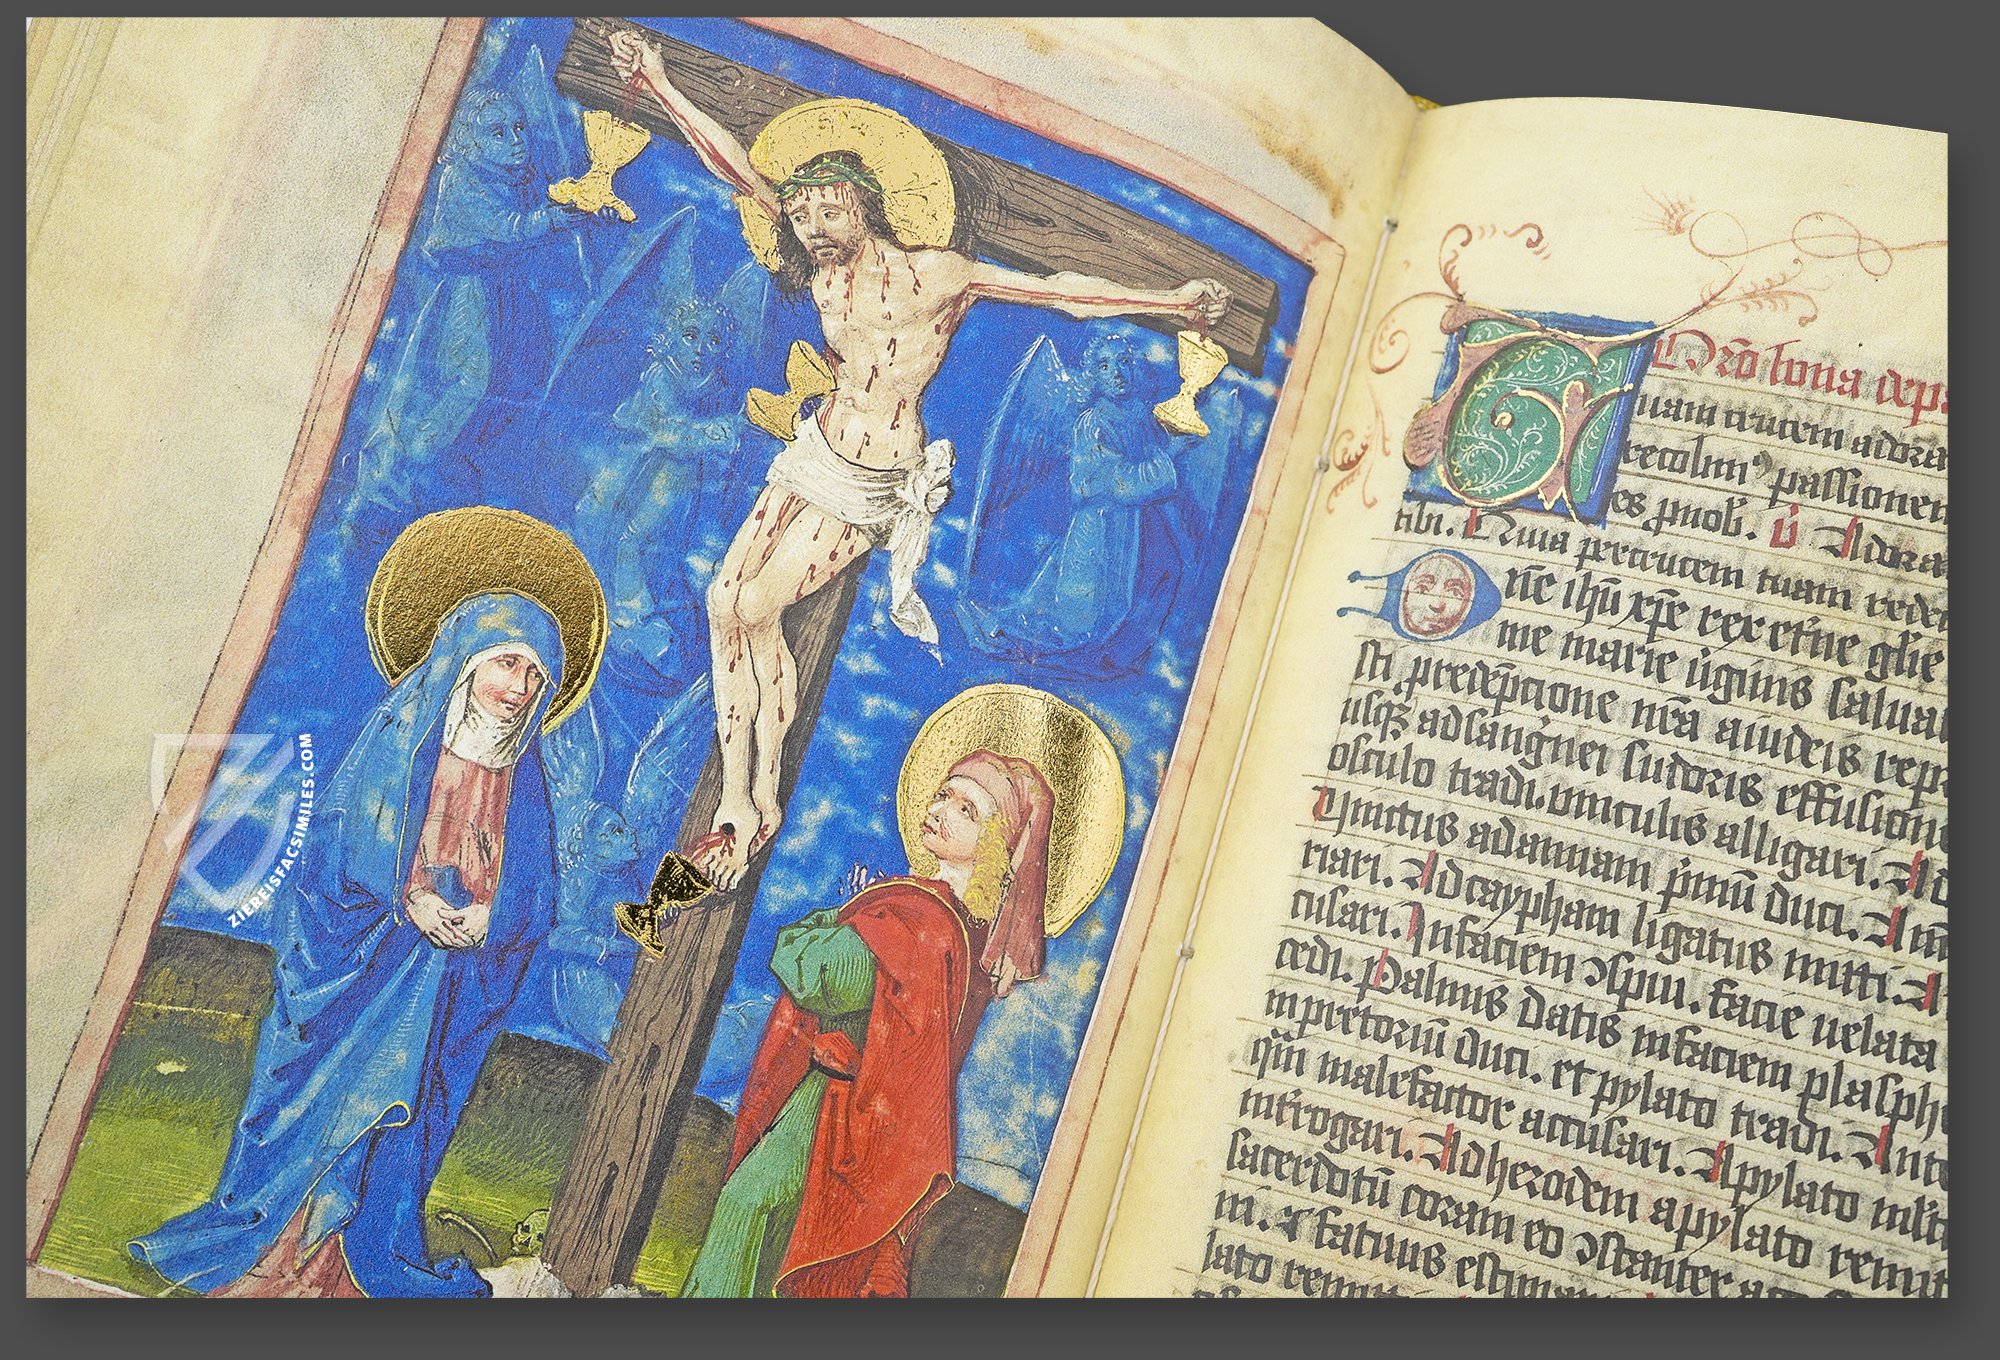 ZIEREISFACSIMILES.COM
Or̄o bona de pa
uam crucem adora
recolimꝰ passionem
es pnob̄. v̄ Adora
tibi. Quia per crucem tuam redem
Dn̄e ihū xp̄e rex etn̄e glīe
me marie v̓ginis saluat
sti p̱redēptione nr̄a a iudeis rep
usqꝫ ad sang̓nei sudoris effusione
osculo tradi. vinculis alligari. Ad
vinctus ad annam p̓mū duci. Am
riari. Ad caypham ligatus mitti. A
cusari. In faciem ꝯspui. facie uelata
cedi. Palmis datis in faciem plasph
in pretoriū duci. et pylato tradi. Ante
qm̄ malefactor accusari. A pylato
introgari. Ad herodem a pylato remit
sacerdotū coram eo ꝯstanter ac
ri. fatuus estima
lato remitti